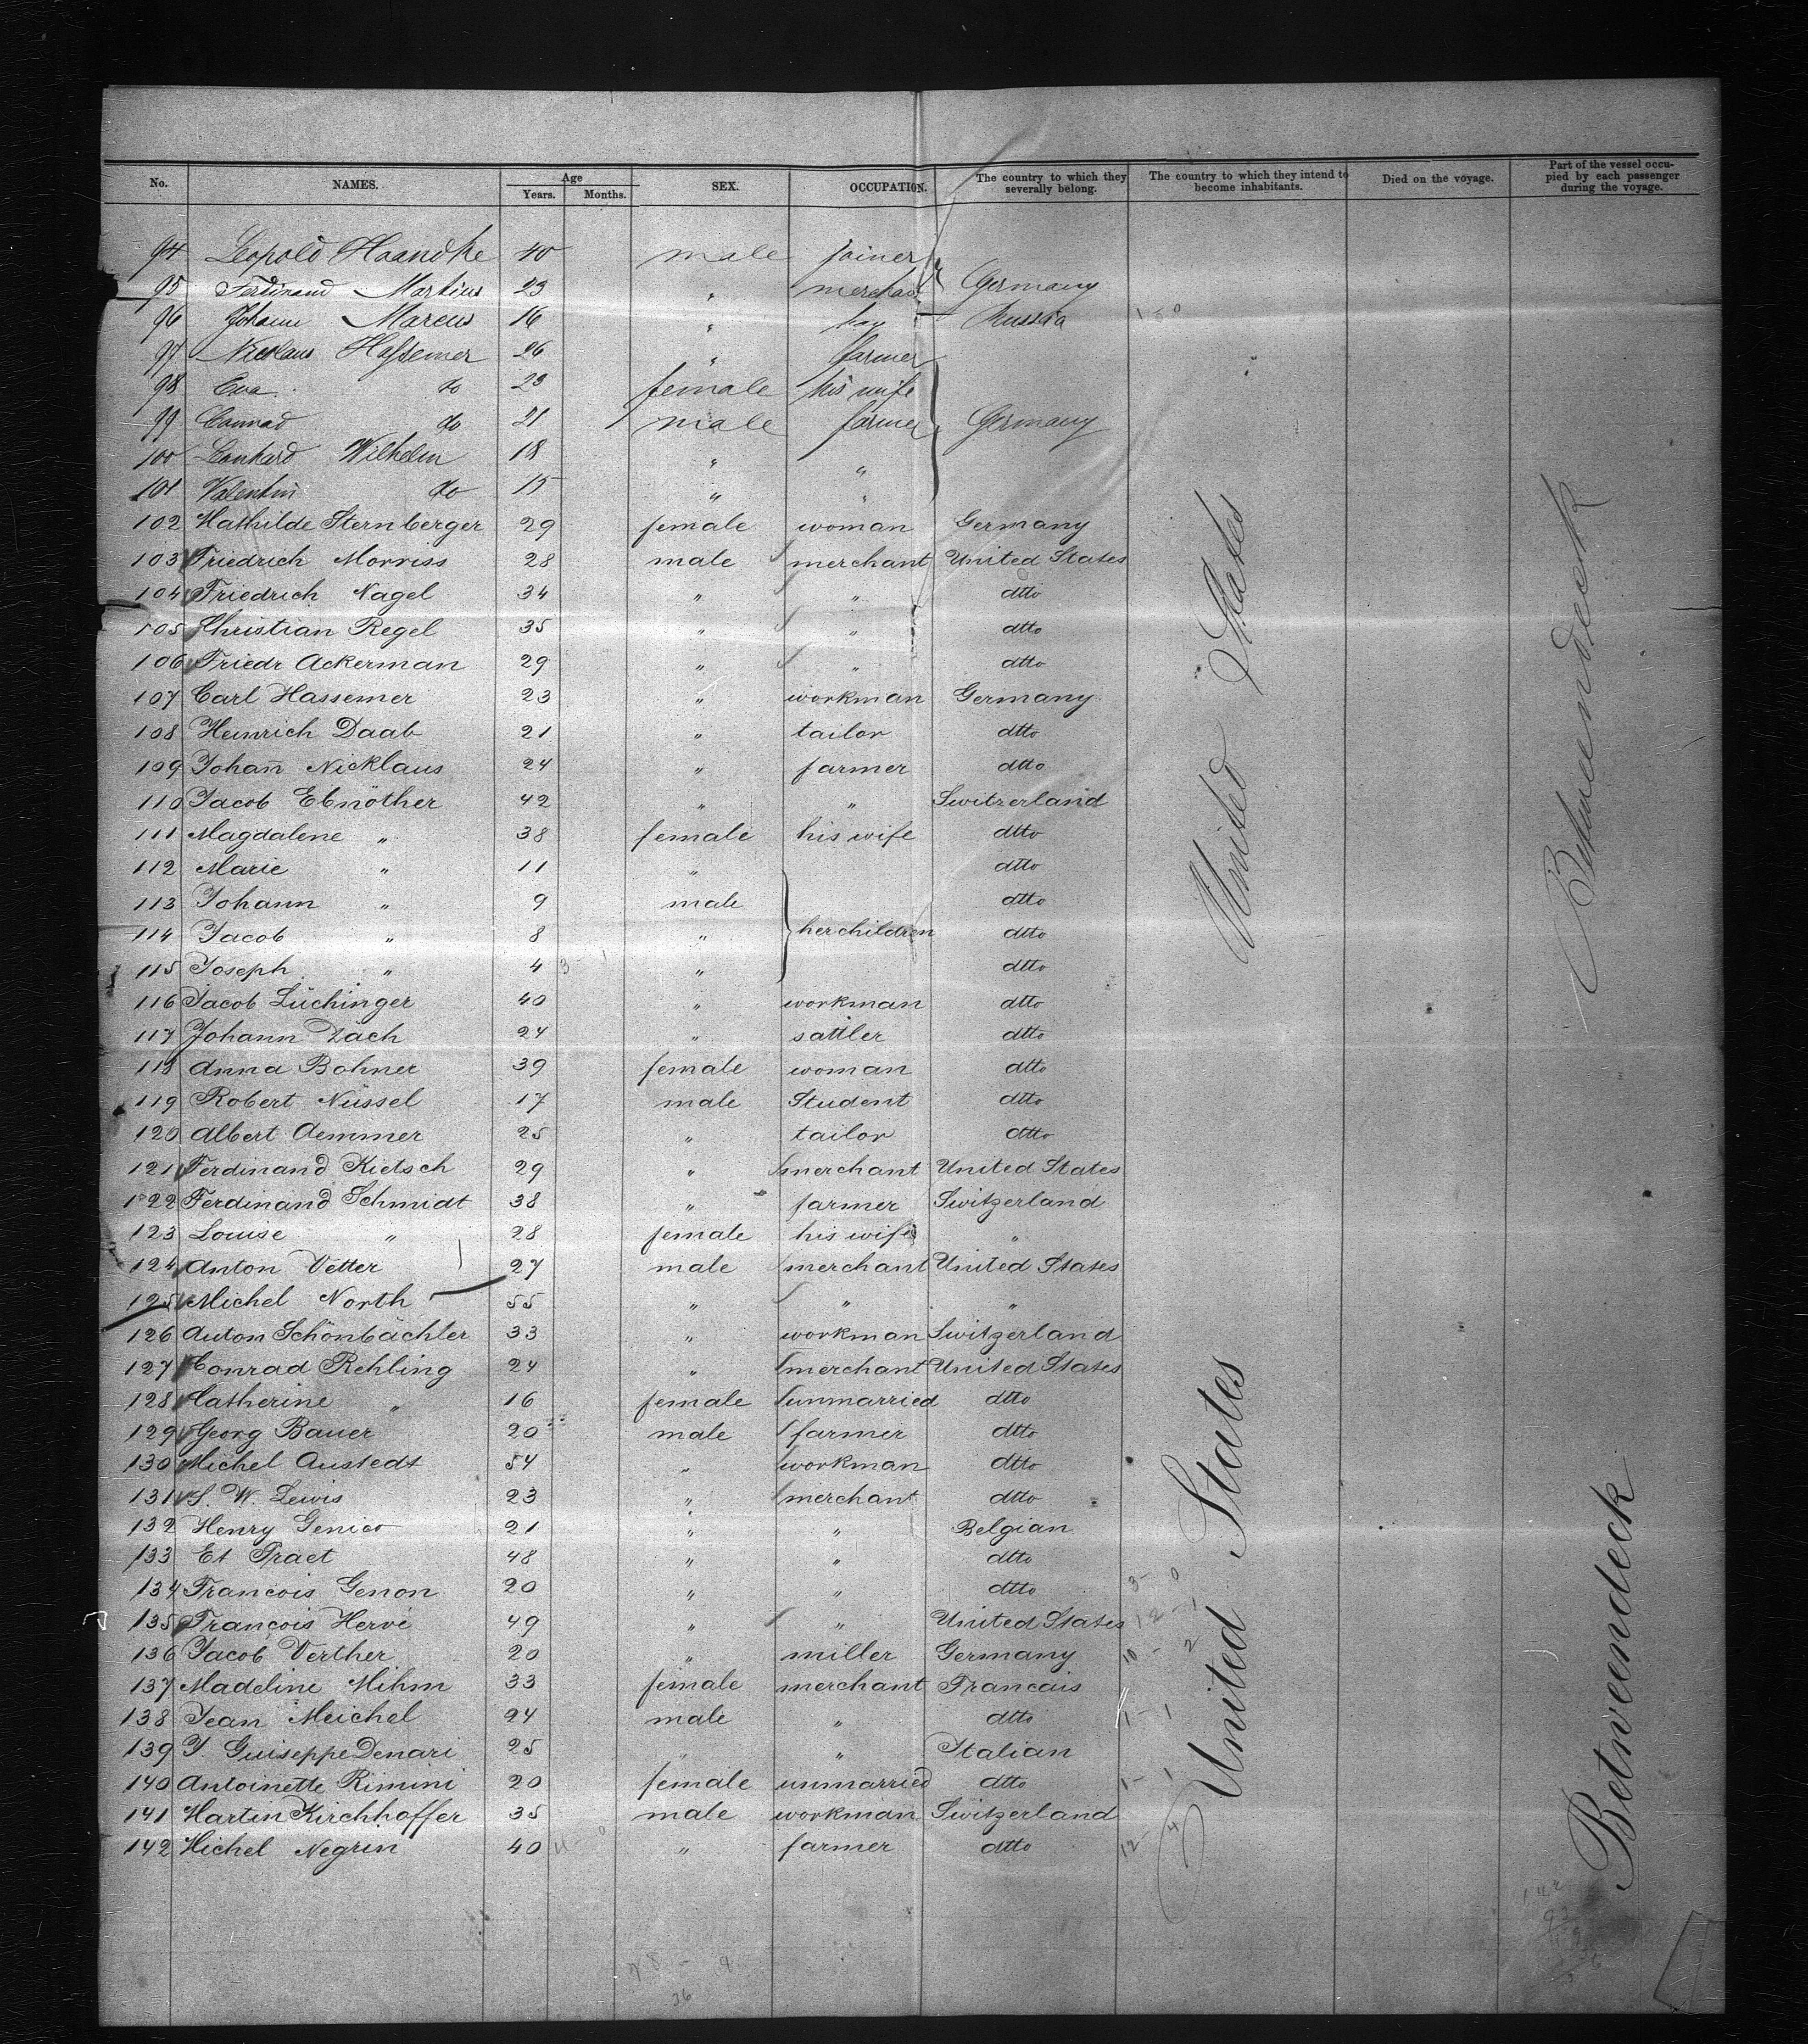 No. NAMES. Age Years. Months. SEX. OCCUPATION. The country to which they severally belong. The country to which they intend to become inhabitants. Died on the voyage. Part of the vessel occupied by each passenger during the voyage.
94 Leopold Haandke 40 male joiner
95 Ferdinand Martius 23 " merchant Germany
96 Johann Marcus 16 " boy Russia 1-0
97 Nicklaus Hassemer 26 " farmer
98 Eva do 23 female his wife
99 Conrad do 21 male farmer Germany
100 Leonhard Wilhelm 18 " "
101 Valentin do 15 " "
102 Mathilde Sternberger 29 female woman Germany
103 Friedrich Morriss 28 male merchant United States
104 Friedrich Nagel 34 " " dtto
105 Christian Regel 35 " " dtto
106 Friedr Ackerman 29 " " dtto
107 Carl Hassemer 23 " workman Germany
108 Heinrich Daab 21 " tailor dtto
109 Johan̄ Nicklaus 24 " farmer dtto
110 Jacob Ebnöther 42 " " Switzerland
111 Magdalene " 38 female his wife dtto
112 Marie " 11 " dtto
113 Johann " 9 male dtto
114 Jacob " 8 " her children dtto
115 Joseph " 4 " dtto
116 Jacob Lüchinger 40 " workman dtto
117 Johann Zäch 24 " sattler dtto
118 Anna Bohner 39 female woman dtto
119 Robert Nüssel 17 male Student dtto
120 Albert Aemmer 25 " tailor dtto
121 Ferdinand Kietsch 29 " merchant United States
122 Ferdinand Schmidt 38 " farmer Switzerland
123 Louise " 28 female his wife "
124 Anton Vetter 27 male merchant United States
125 Michel North 55 " " "
126 Anton Schönbächler 33 " workman Switzerland
127 Conrad Rehling 24 " merchant United States
128 Catherine " 16 female unmarried dtto
129 Georg Bauer 20 male farmer dtto
130 Michel Austedt 54 " workman dtto
131 S. W. Lewis 23 " merchant dtto
132 Henry Genico 21 " " Belgian
133 Et Praet 48 " " dtto
134 Francois Genon 20 " " dtto 3- 0
135 François Herve 49 " " United States 12 - 1
136 Jacob Verther 20 " miller Germany 10 - 2
137 Madeline Mihm 33 female merchant Francais
138 Jean Meichel 24 male " dtto 1- 1
139 J. Guiseppe Denari 25 " " Italian
140 Antoinette Rimini 20 female unmarried dtto 1- 1
141 Martin Kirchhoffer 35 male workman Switzerland
142 Michel Negrin 40 " farmer dtto 12- 4
United States
United States
Betweendeck
Betweendeck
36